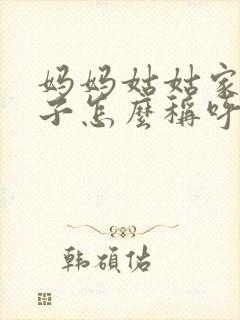 妈妈姑姑家
子怎麽稱呼
韩碩佑